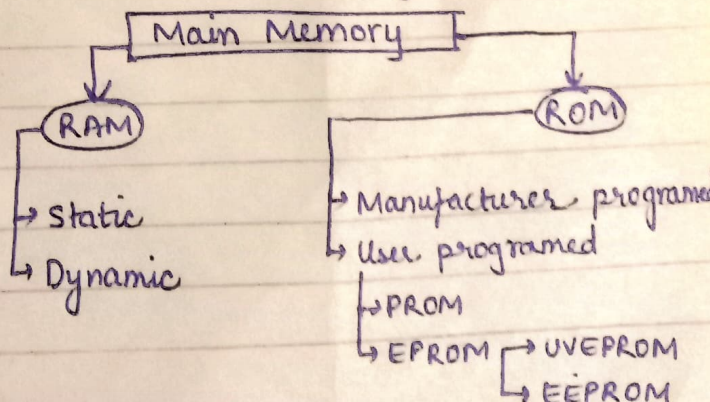 Main Memory
RAM
ROM
Static
Dynamic
Manufacturer programed
User programed
PROM
EPROM
UVEPROM
EEPROM